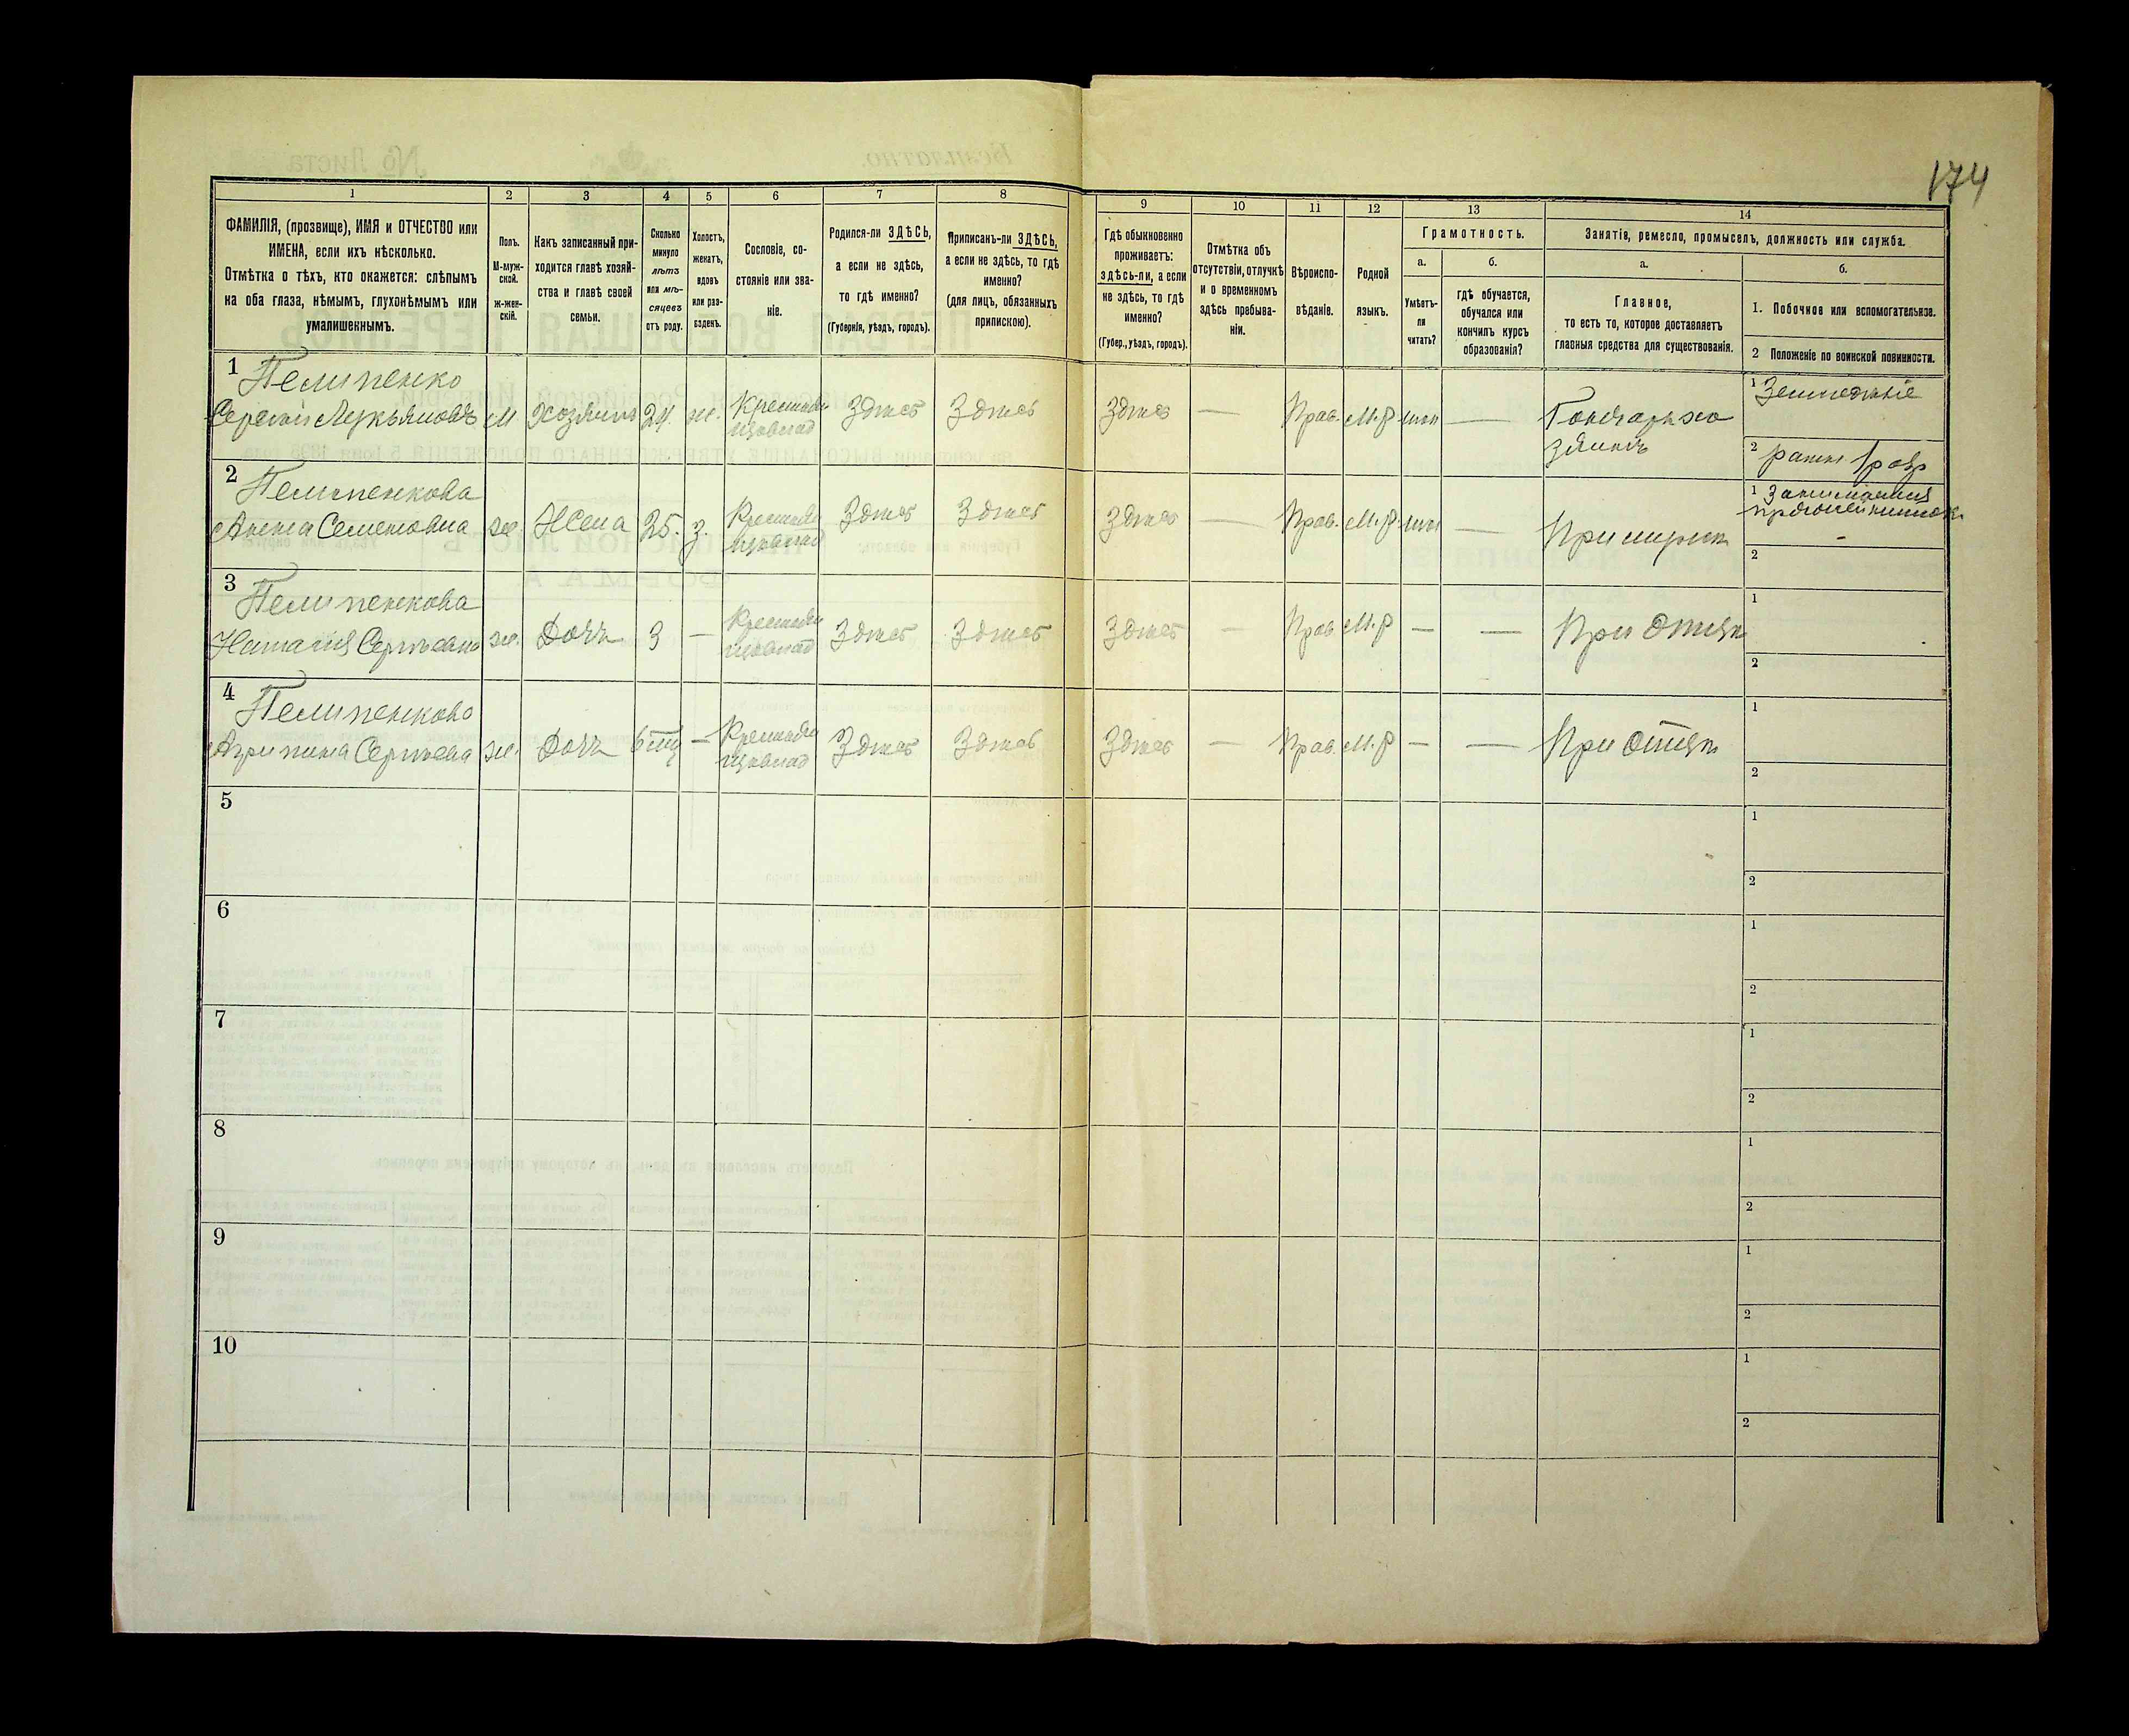 174
1
2
3
4
5
6
7
8
9
10
11
12
13
14
ФАМИЛІЯ, (прозвище), ИМЯ и ОТЧЕСТВО или
ИМЕНА, если ихъ нѣсколько.
Отмѣтка о тѣхъ, кто окажется: слѣпымъ
на оба глаза, нѣмымъ, глухонѣмымъ или
умалишеннымъ.
Полъ.
М-муж-
ской.
ж-жен-
скій.
Какъ записанный при-
ходится главѣ хозяй-
ства и главѣ своей
семьи.
Сколько
минуло
лѣтъ
или мѣ-
сяцевъ
отъ роду.
Холостъ,
женатъ,
вдовъ
или раз-
веденъ.
Сословіе, со-
стояніе или зва-
ніе.
Родился-ли ЗДѢСЬ,
а если не здѣсь,
то гдѣ именно?
(Губернія, уѣздъ, городъ).
Приписанъ-ли ЗДѢСЬ,
а если не здѣсь, то гдѣ
именно?
(для лицъ, обязанныхъ
припискою).
Гдѣ обыкновенно
проживаетъ:
здѣсь-ли, а если
не здѣсь, то гдѣ
именно?
(Губер., уѣздъ, городъ).
Отмѣтка объ
отсутствіи, отлучкѣ
и о временномъ
здѣсь пребыва-
ніи.
Вѣроиспо-
вѣданіе.
Родной
языкъ.
Грамотность.
а.
Умѣетъ-
ли
читать?
б.
гдѣ обучается,
обучался или
кончилъ курсъ
образованія?
Занятіе, ремесло, промыселъ, должность или служба.
а.
Главное,
то есть то, которое доставляетъ
главныя средства для существованія.
б.
1. Побочное или вспомогательное.
2 Положеніе по воинской повинности.
1 Пелипенко
Сергѣй Лукьяновъ М Хозяинъ 24. ж. Крестьян Здѣсь Здѣсь Здѣсь — Прав. М.р — Гончаръ хо
зяинъ
1 Земледѣліе
2 ратн 1 раз
2 Пелипенкова
Анна Семеновна ж. Жена 25. з. Здѣсь Здѣсь Здѣсь — Прав. М.р. — При мужѣ
1
2
3 Пелипенкова
Наталія Сергѣевна ж. Дочь 3 — Здѣсь Здѣсь Здѣсь — Прав М.р — — При Отцѣ
1
2
4 Пелипенкова
Агрипина Сергѣева ж. Дочь 6 мц — Здѣсь Здѣсь Здѣсь — Прав. М.р — — При отцѣ
1
2
5
1
2
6
1
2
7
1
2
8
1
2
9
1
2
10
1
2